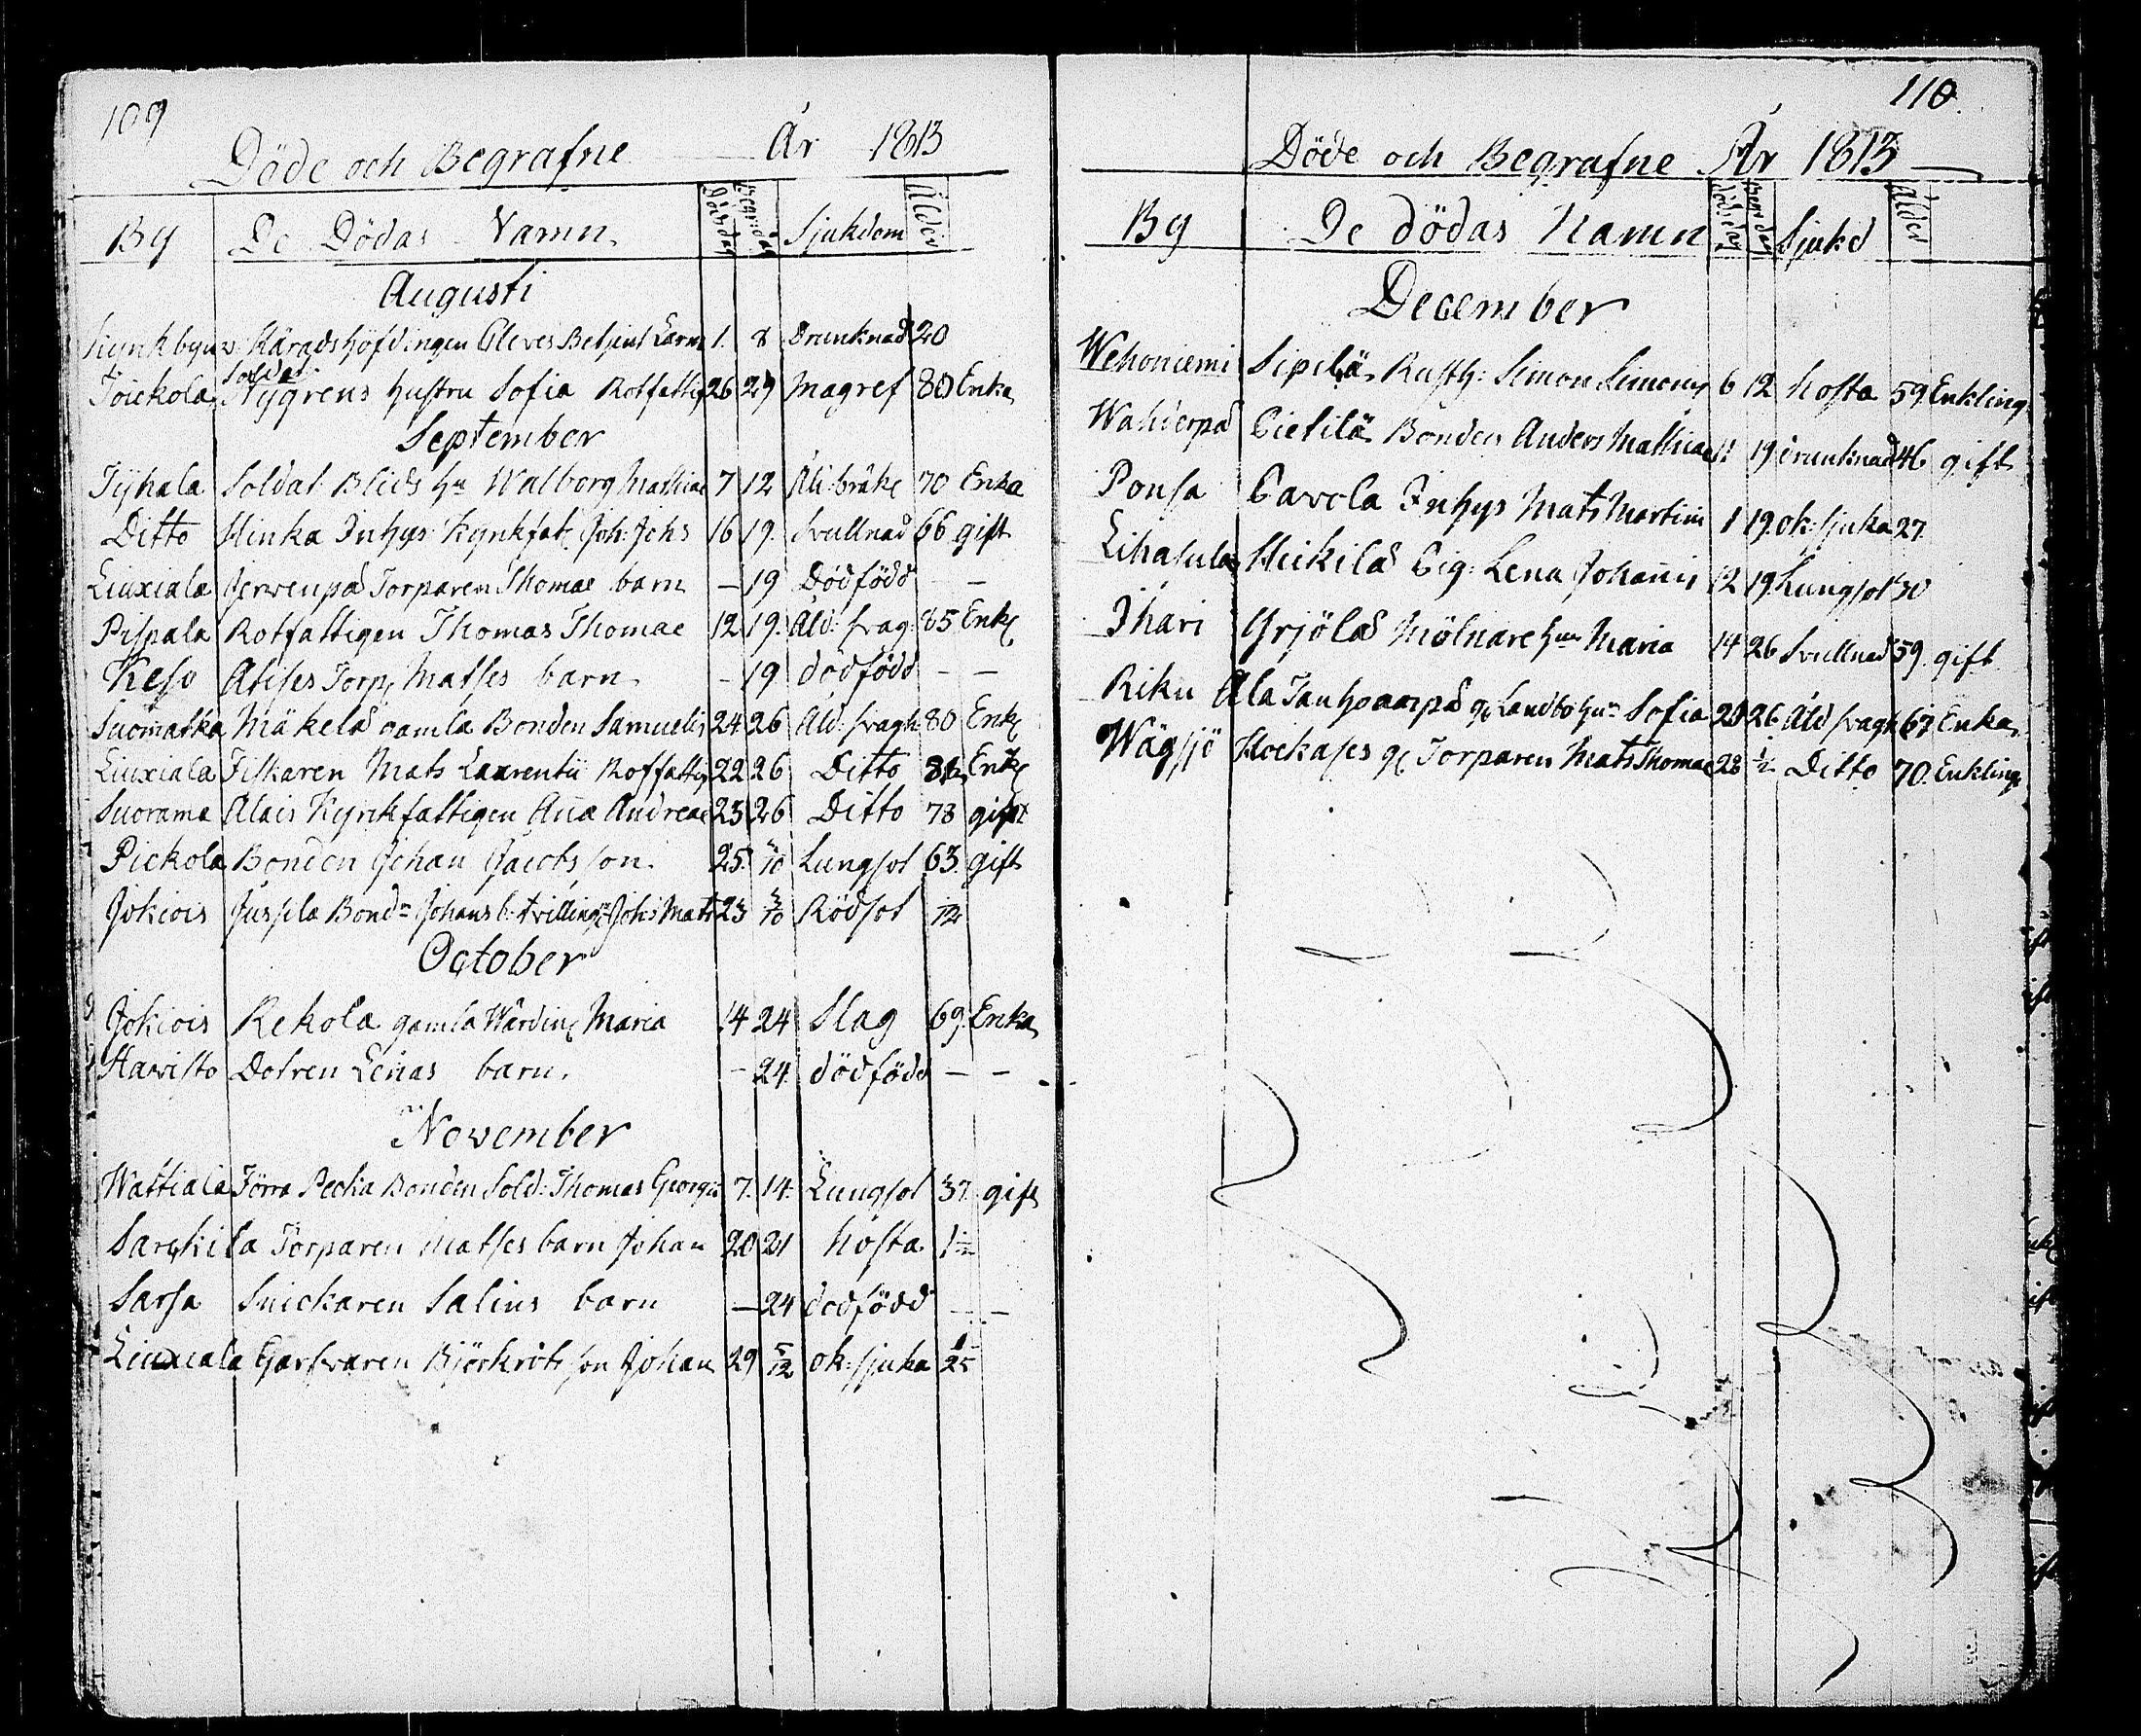 109
Döde och Begrafne År 1813
By De Dödas Namn Dödsdag Begr:dag Sjukdom Ålder
Augusti
Kyrkbyn v: Häradshöfdingen Cleves Betjent 1. 8 Drunknad 20
Soldat
Toickola Nygrens hustru Sofia Rotfattig 26 29 Magref 80 Enka
September
Tyhala Soldat Blids hu Walborg Mathiae 7 12 Åld:bråk 70 Enka
Ditto Hinka Inhys Kyrkfat Joh: Johs 16 19. Svullnad 66 gift
Liuxiala Jerwenpä Torparen Thomae barn — 19 Dödfödd — —
Pispala Rotfattigen Thomas Thomae 12 19. Åld: svag: 85 Enkl
Keso Atises Torp. Matses barn — 19 dödfödd — —
Suomatka Mäkelä gamla Bonden Samuelis 24 26 Åld: svagh 80 Enkl
Liuxiala Fiskaren Mats Laurentii Rotfattig 22 26 Ditto Enkl
Suorama Alais Kyrkfattigen Aña Andreae 23 26 Ditto 73 gift
Pickola Bonden Johan Jacobsson. 25. 3/10 Lungsot 63. gift
Jokiois Jussila Bondn Johans b: tvilling Johs Mats 23 3/10 Rödsot 1/2
October
Jokiois Rekola gamla Wärdin Maria 14 24 Slag 69. Enka
Hawisto Dotren Lenas barn. — 24. dödfödd — —
November
Wattiala Jörra Pecka Bonden Sold: Thomas Georgii 7. 14. Lungsot 37. gift
Sarckila Torparen Matses barn Johan 20 21 hosta 1 1/2
Sarsa Snickaren Salins barn — 24 dödfödd — —
Liuxiala Garfvaren Björkrots son Johan 29 5/12 ok: sjuka 1/25
110.
Döde och Begrafne År 1813
By De dödas Namn dödsdag Begr dag Sjukd ålder
December
Wehoniemi Sipilä Rusth: Simon Simonis 6 12 hosta 59. Enkling
Wahderpä Pietilä Bonden Anders Mathiae 11 19 drunknad 46 gift
Ponsa Pavola Inhys Mats Martini 1 19. ok: sjuka 27.
Lihasula Heikilä Pig: Lena Johannis 12 19. Lungsot 30
Ihari Yrjölä Mölnare hun Maria 14 26 Svullnad 59. gift
Riku Ala Tanhuanpä gl Landbo hun Sofia 20 26 Åld svagh 67. Enka
Wägsjö Hockases gl Torparen Mats Thomae 28 1/2 Ditto 70. Enkling